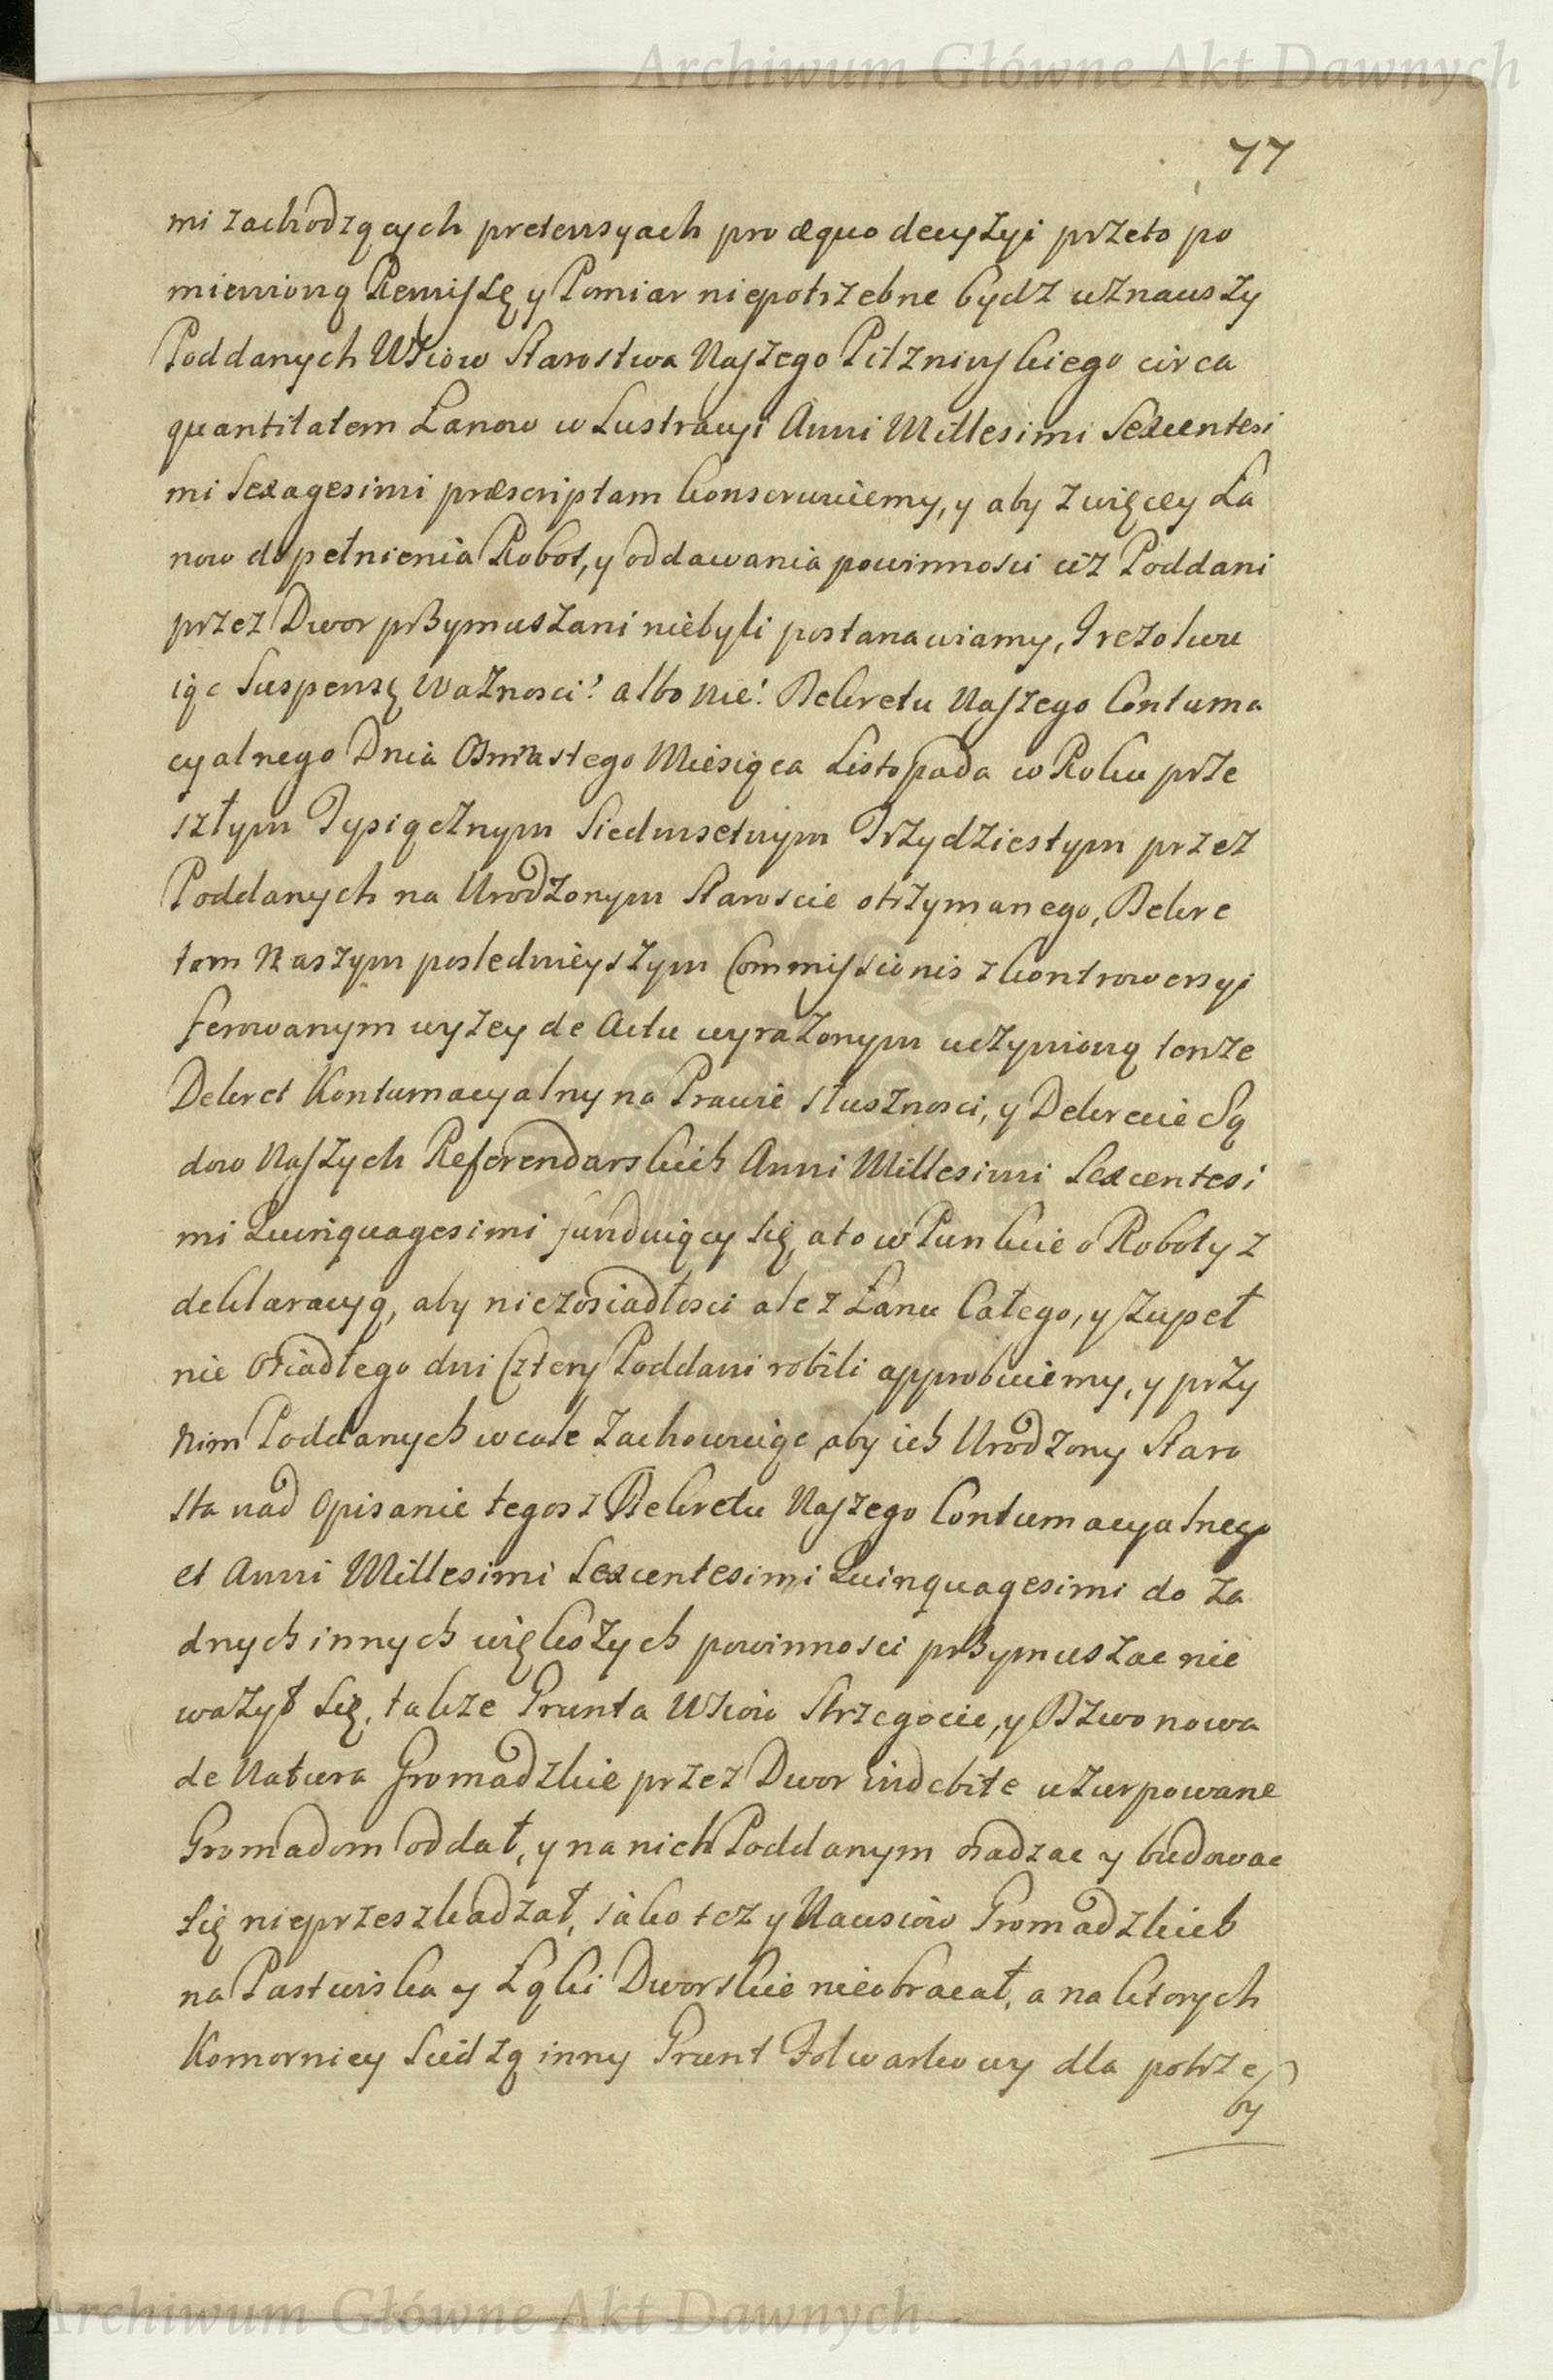 Archiwum Główne Akt Dawnych
77
mi zachodzących pretensyach pro æquo decyzyi przeto po
mienioną Remissę y Pomiar niepotrzebne bydz uznawszy
Poddanych Wsiow Starostwa Naszego Pilzninskiego circa
quantitatem Łanow w Lustracyi Anni Millesimi Sexcentesi
mi Sexagesimi præscriptam konserwuiemy, y aby z więcey Ła
now do pełnienia Robot, y oddawania powinnosci ciż Poddani
przez Dwor przymuszani niebyli postanawiamy, I rezolwu
iąc Suspensę Waznosci? albo nie! Dekretu Naszego Contuma
cyalnego Dnia Osmnastego Miesiąca Listopada w Roku prze
szłym Tysiącznym Siedmsetnym Trzydziestym przez
Poddanych na Urodzonym Staroscie otrzymanego, Dekre
tem Naszym poslednieyszym Commissionis z kontrowersyi
ferowanym wyzey de Actu wyrazonym uczynioną tenze
Dekret Kontumacyalny na Prawie słusznosci, y Dekrecie Są
dow Naszych Referendarskich Anni Millesimi Sexcentesi
mi Quinquagesimi funduiący się, a to w Punkcie o Roboty z
deklaracyą, aby nie z osiadłosci ale z Łanu Całego, y zupeł
nie Osiadłego dni Cztery Poddani robili approbuiemy, y przy
nim Poddanych wcale zachowuiąc aby ich Urodzony Staro
sta nad Opisanie tegosz Dekretu Naszego Contumacyalnego
et Anni Millesimi Sexcentesimi Quinquagesimi do za
dnych innych większych powinnosci przymuszac nie
wazył się, takze Grunta Wsiow Strzegocic, y Dzwonowa
de Natura Gromadzkie przez Dwor indebite uzurpowane
Gromadom oddał, y na nich Poddanym osadzac y budowac
się nieprzeszkadzał, iako tez y Nawsiow Gromadzkich
na Pastwiska y Łąki Dworskie nieobracał, a na ktorych
Komornicy Siedzą inny Grunt Folwarkowy dla potrze
by
Archiwum Główne Akt Dawnych